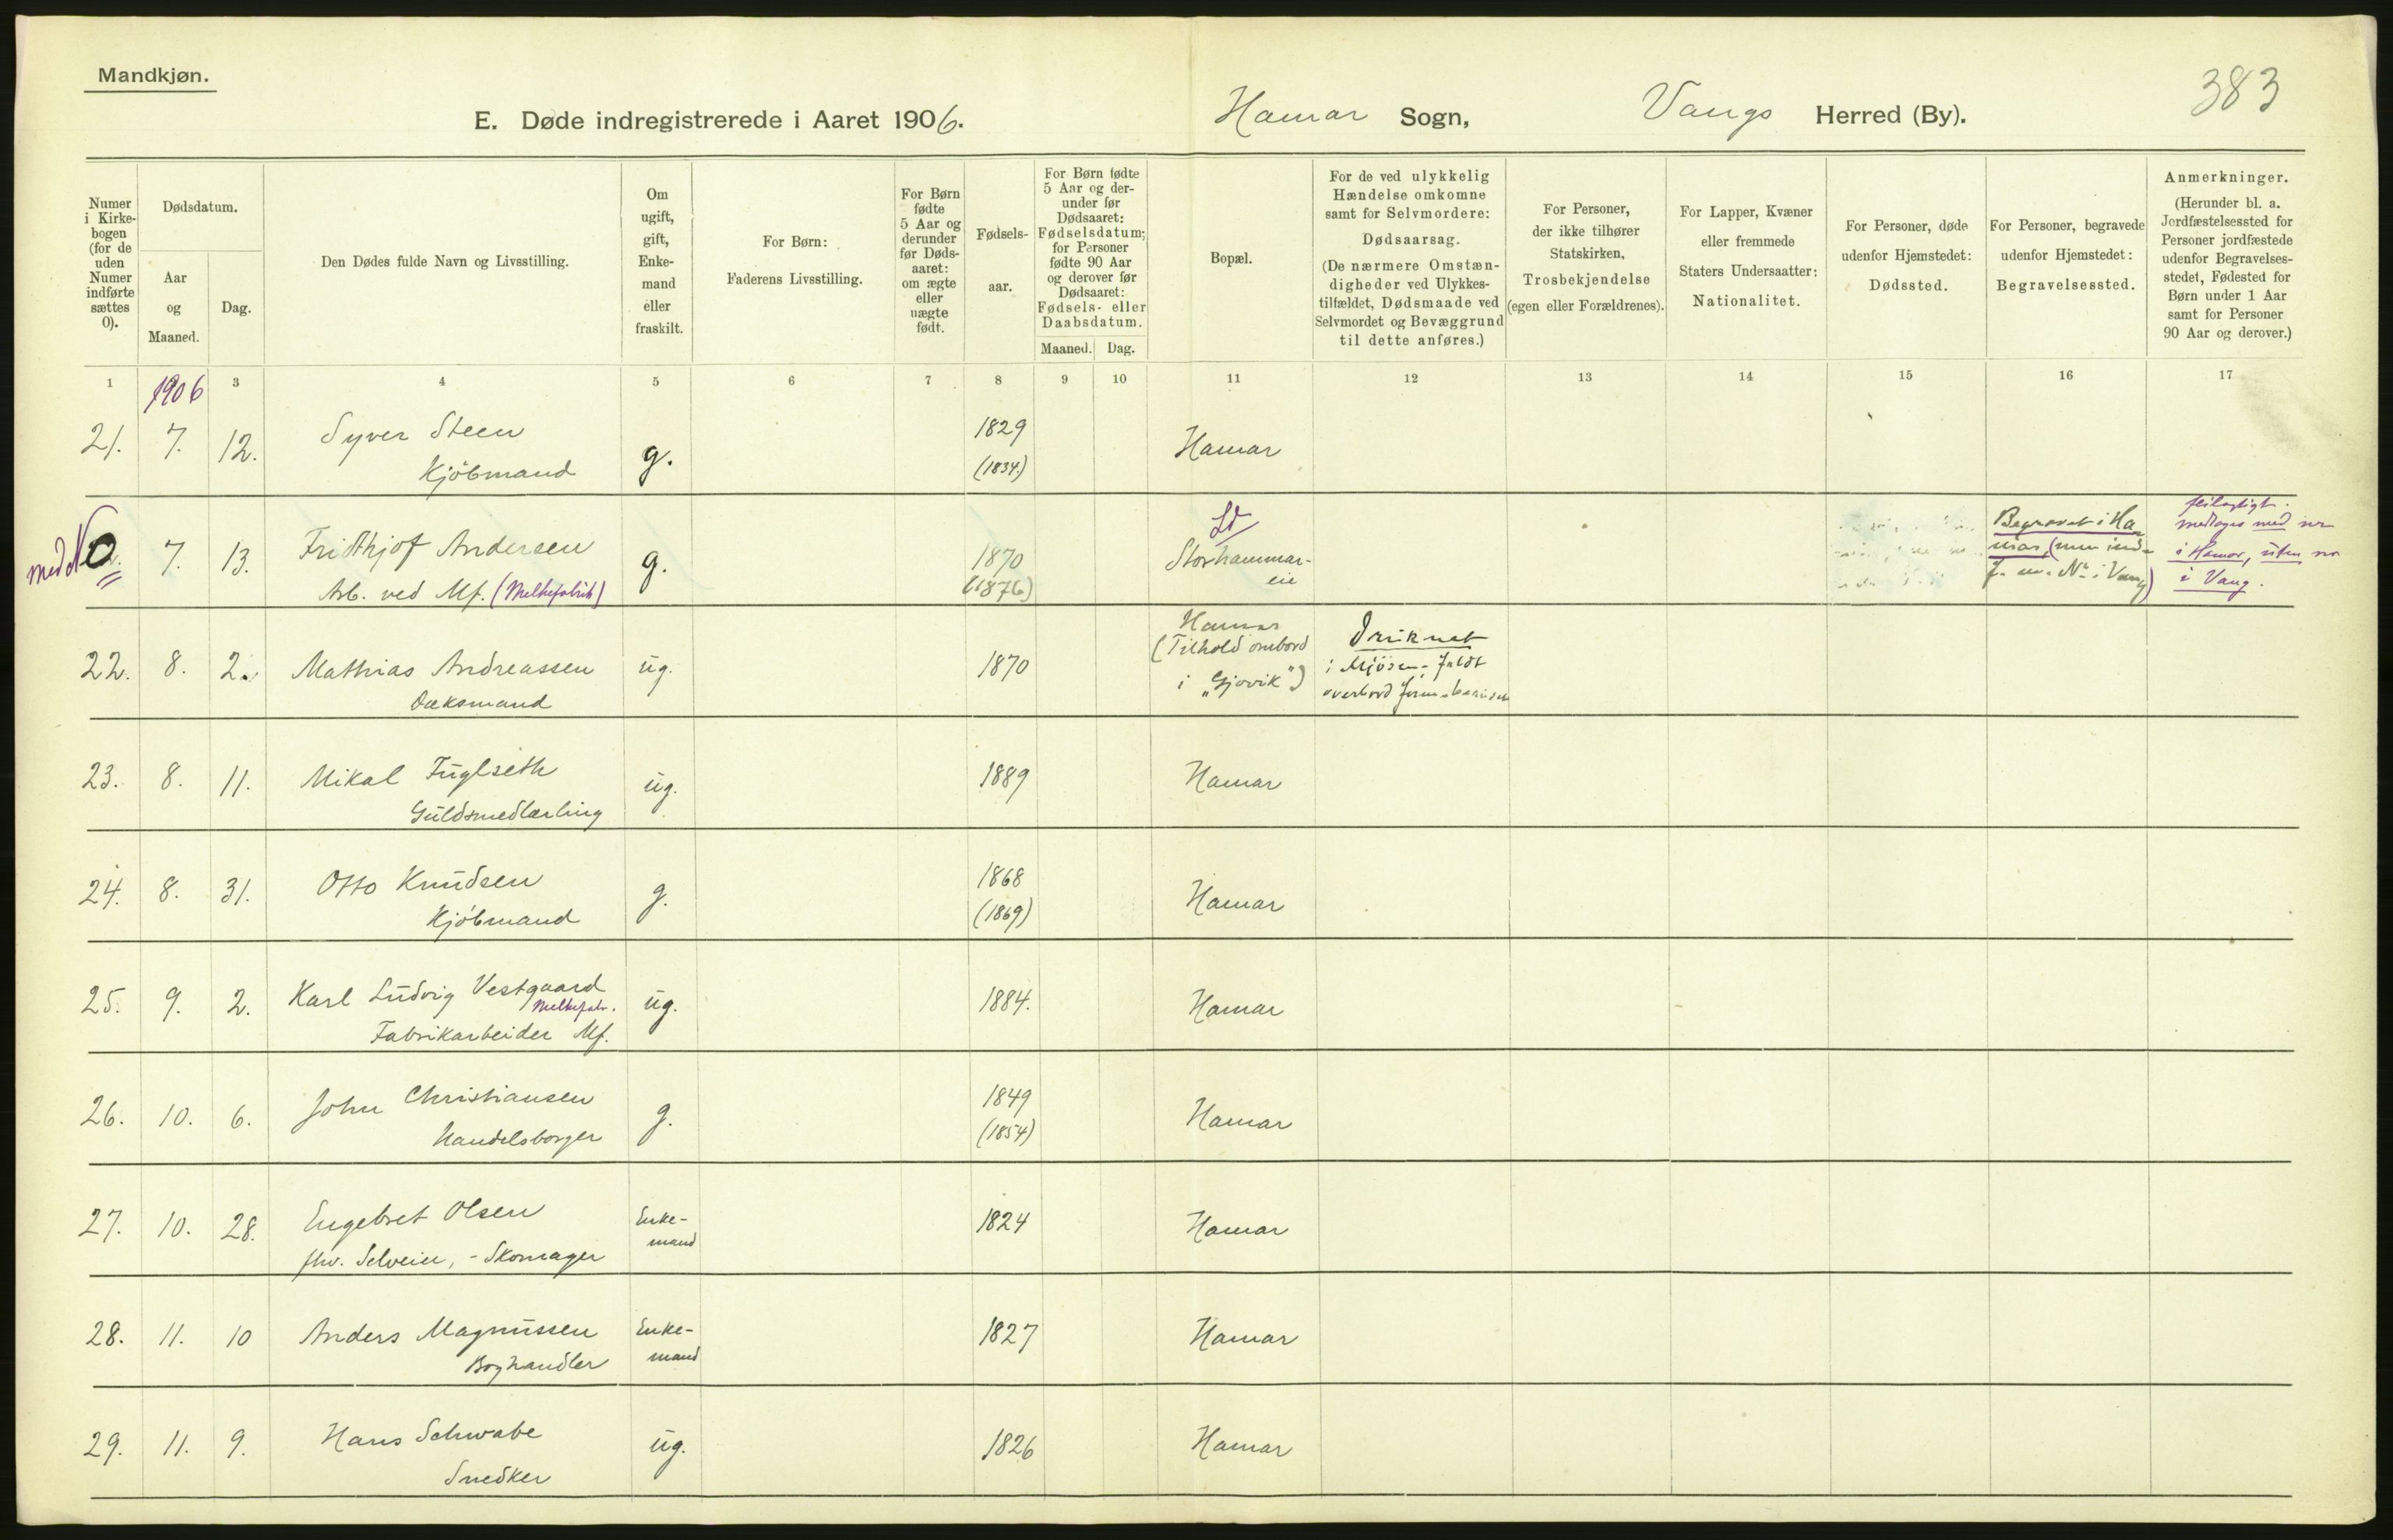 Mandkjøn.
383
E. Døde indregistrerede i Aaret 1906. Hamar Sogn, Vangs Herred (By).
Numer i Kirkebogen (for de uden Numer indførte sættes 0).
Dødsdatum.
Aar og Maaned.
Dag.
Den Dødes fulde Navn og Livsstilling.
Om ugift, gift, Enkemand eller fraskilt.
For Børn: Faderens Livsstilling.
For Børn fødte 5 Aar og derunder før Dødsaaret: om ægte eller uægte født.
Fødselsaar.
For Børn fødte 5 Aar og derunder før Dødsaaret: Fødselsdatum; for Personer fødte 90 Aar og derover før Dødsaaret: Fødsels- eller Daabsdatum.
Maaned. Dag.
Bopæl.
For de ved ulykkelig Hændelse omkomne samt for Selvmordere: Dødsaarsag. (De nærmere Omstændigheder ved Ulykkestilfældet, Dødsmaade ved Selvmordet og Bevæggrund til dette anføres.)
For Personer, der ikke tilhører Statskirken, Trosbekjendelse (egen eller Forældrenes).
For Lapper, Kvæner eller fremmede Staters Undersaatter: Nationalitet.
For Personer, døde udenfor Hjemstedet: Dødssted.
For Personer, begravede udenfor Hjemstedet: Begravelsessted.
Anmerkninger. (Herunder bl. a. Jordfæstelsessted for Personer jordfæstede udenfor Begravelsesstedet, Fødested for Børn under 1 Aar samt for Personer 90 Aar og derover.)
1 2 3 4 5 6 7 8 9 10 11 12 13 14 15 16 17
1906
21. 7. 12. Syver Steen g. 1829 Hamar
Kjöbmand (1834.)
0 7. 13. Fridthjof Andersen g. 1870 Storhammar-
Arb. ved Mf. (Melkefabrik) (1876) eie
Begravet i Hamar (men
i Vang)
feilagtigt.
medtages med nr
i Hamar, uten nr
i Vang.
22. 8. 2. Mathias Andreassen ug. 1870 Hamar
Dæksmand
(Tilhold ombord
i "Gjøvik")
Druknet
i Mjösen. Faldt
overbord
23. 8. 11. Mikal Fuglseth ug. 1889 Hamar
Guldsmedlærling
24. 8. 31. Otto Knudsen g. 1868 Hamar
Kjöbmand (1869)
25. 9. 2. Karl Ludvig Vestgaard ug. 1884. Hamar
Melkefabr.
Fabrikarbeider Mf.
26. 10. 6. John Christiansen g. 1849 Hamar
Handelsborger (1854)
27. 10. 28. Engebret Olsen Enke- 1824 Hamar
fhv. Selveier, - Skomager mand
28. 11. 10 Anders Magnussen Enke- 1827 Hamar
Boghandler mand
29. 11. 9. Hans Schwabe ug. 1826 Hamar
Snedker